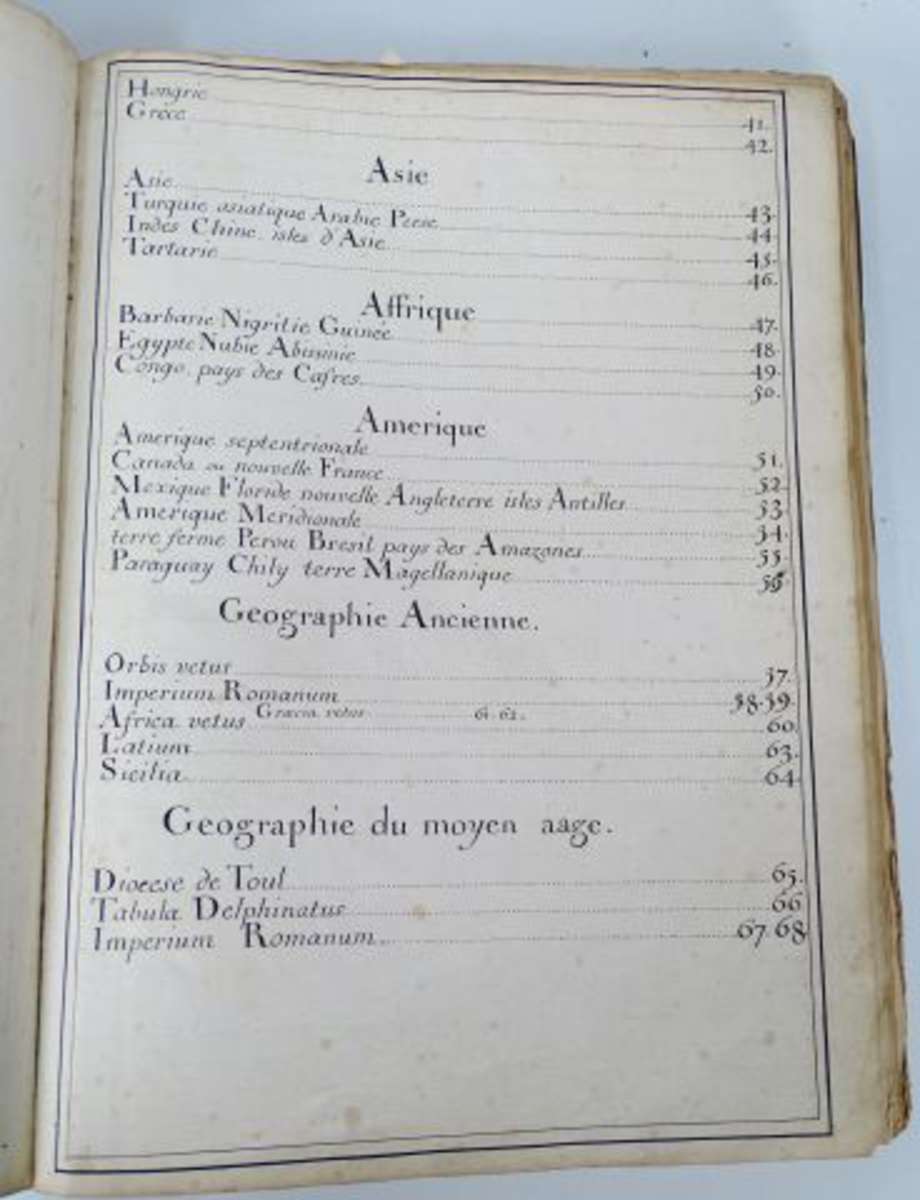 Hongrie 41.
Gréce 42.
Asie
Asie 43
Turquie asiatique Arabie Perse 44
Indes Chine isles d'Asie 45.
Tartarie 46.
Affrique 47
Barbarie Nigritie Guinée 48
Egypte Nubie Abissinie 49
Congo pays des Cafres 50.
Amerique
Amerique septentrionale 51
Canada ou nouvelle France 52
Mexique Floride nouvelle Angleterre isles Antilles 53
Amerique Meridionale 54
terre ferme Perou Bresil pays des Amazones 55
Paraguay Chily terre Magellanique 56
Geographie Ancienne.
Orbis vetus 57
Imperium Romanum 58.59
Græcia vetus 61. 62.
Africa vetus 60
Latium 63.
Sicilia 64
Geographie du moyen aage.
Diocese de Toul 65.
Tabula Delphinatus 66
Imperium Romanum 67 68